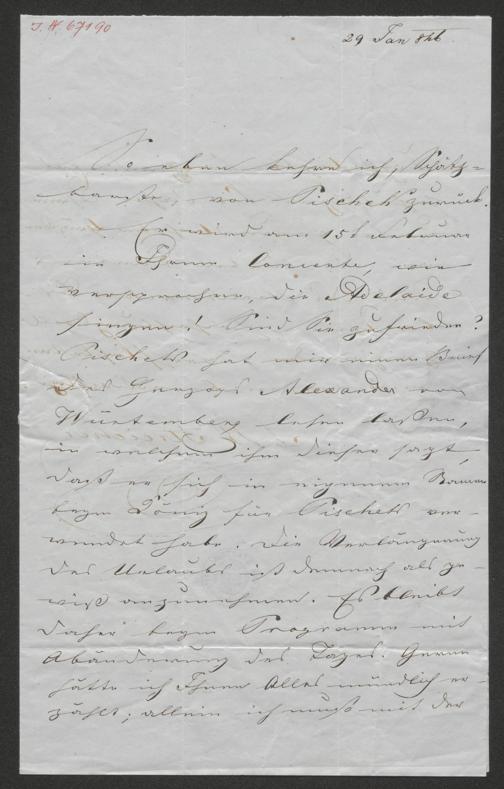 J.N. 67190
29 Jan 846
So eben kehre ich, Schätz-
barste, von Pischek zurück.
Er wird am 15t Februar
in Ihrem Concerte, wie
versprochen, die Adelaide
singen! Sind Sie zufrieden?
Pischek hat mir einen Brief
des Herzogs Alexander von
Würtemberg lesen laßen,
in welchem ihm dieser sagt,
daß er sich in eigenem Namen
beym König für Pischek ver-
wendet habe. Die Verlängerung
des Urlaubs ist demnach als ge-
wiß anzunehmen. Es bleibt
daher beym Programm mit
Abänderung des Tages. Gerne
hätte ich Ihnen Alles mündlich er-
zählt; allein ich muß mit der